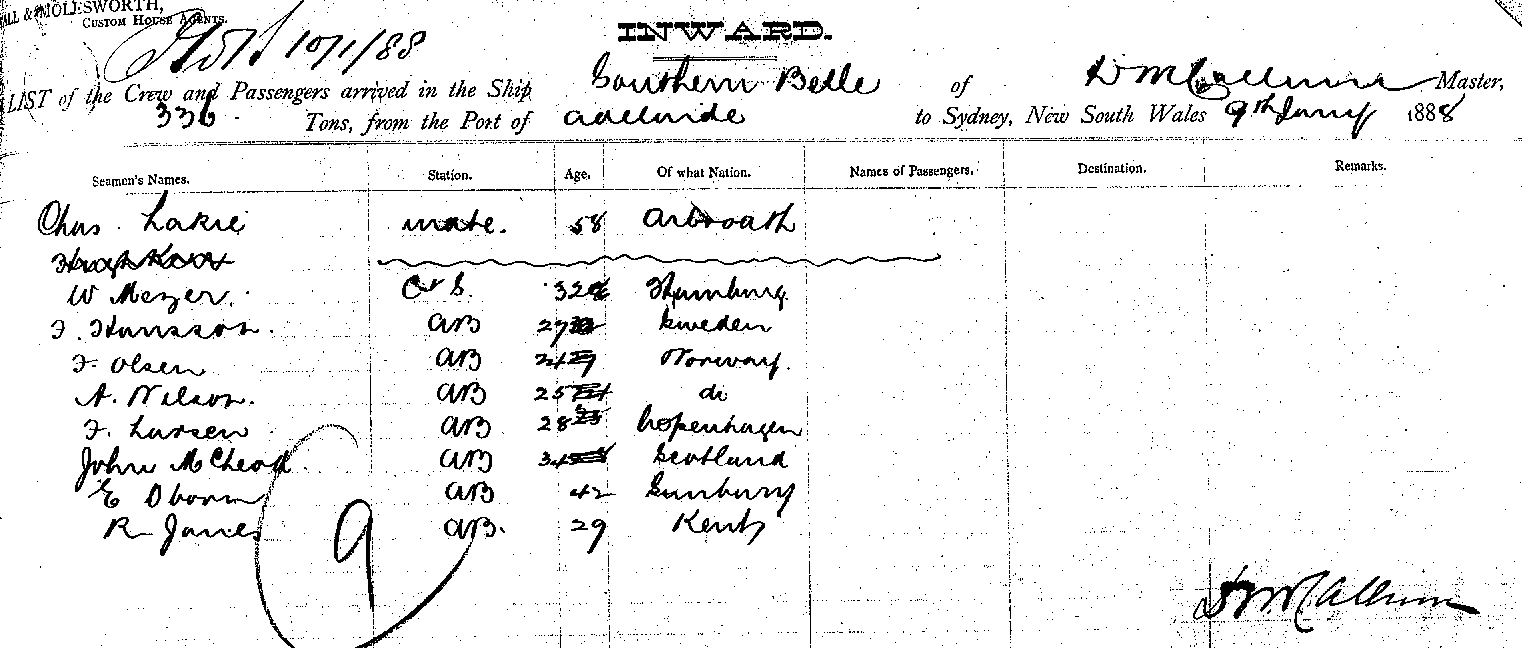 ALL & MOLESWORTH,
CUSTOM HOUSE AGENTS.
10/1/88
INWARD.
LIST of the Crew and Passengers arrived in the Ship Southern Belle of D McCallum Master,
336 Tons, from the Port of Adelaide to Sydney, New South Wales 9th Jany 1888
Seamen's Names. Station. Age. Of what Nation. Names of Passengers. Destination. Remarks.
Chas. Lakie mate. 58 Arbroath
W Mezer. C & S. 32 Hamburg.
F. Hansson. AB 27 Sweden
F. Olsen AB 24 Norway.
A. Nilson. AB 25 do
F. Larsen AB 28 Copenhagen
John McCleod AB 34 Scotland
E Oborn AB 42 Sunbury
R Janes AB. 29 Kent
9
D McCallum